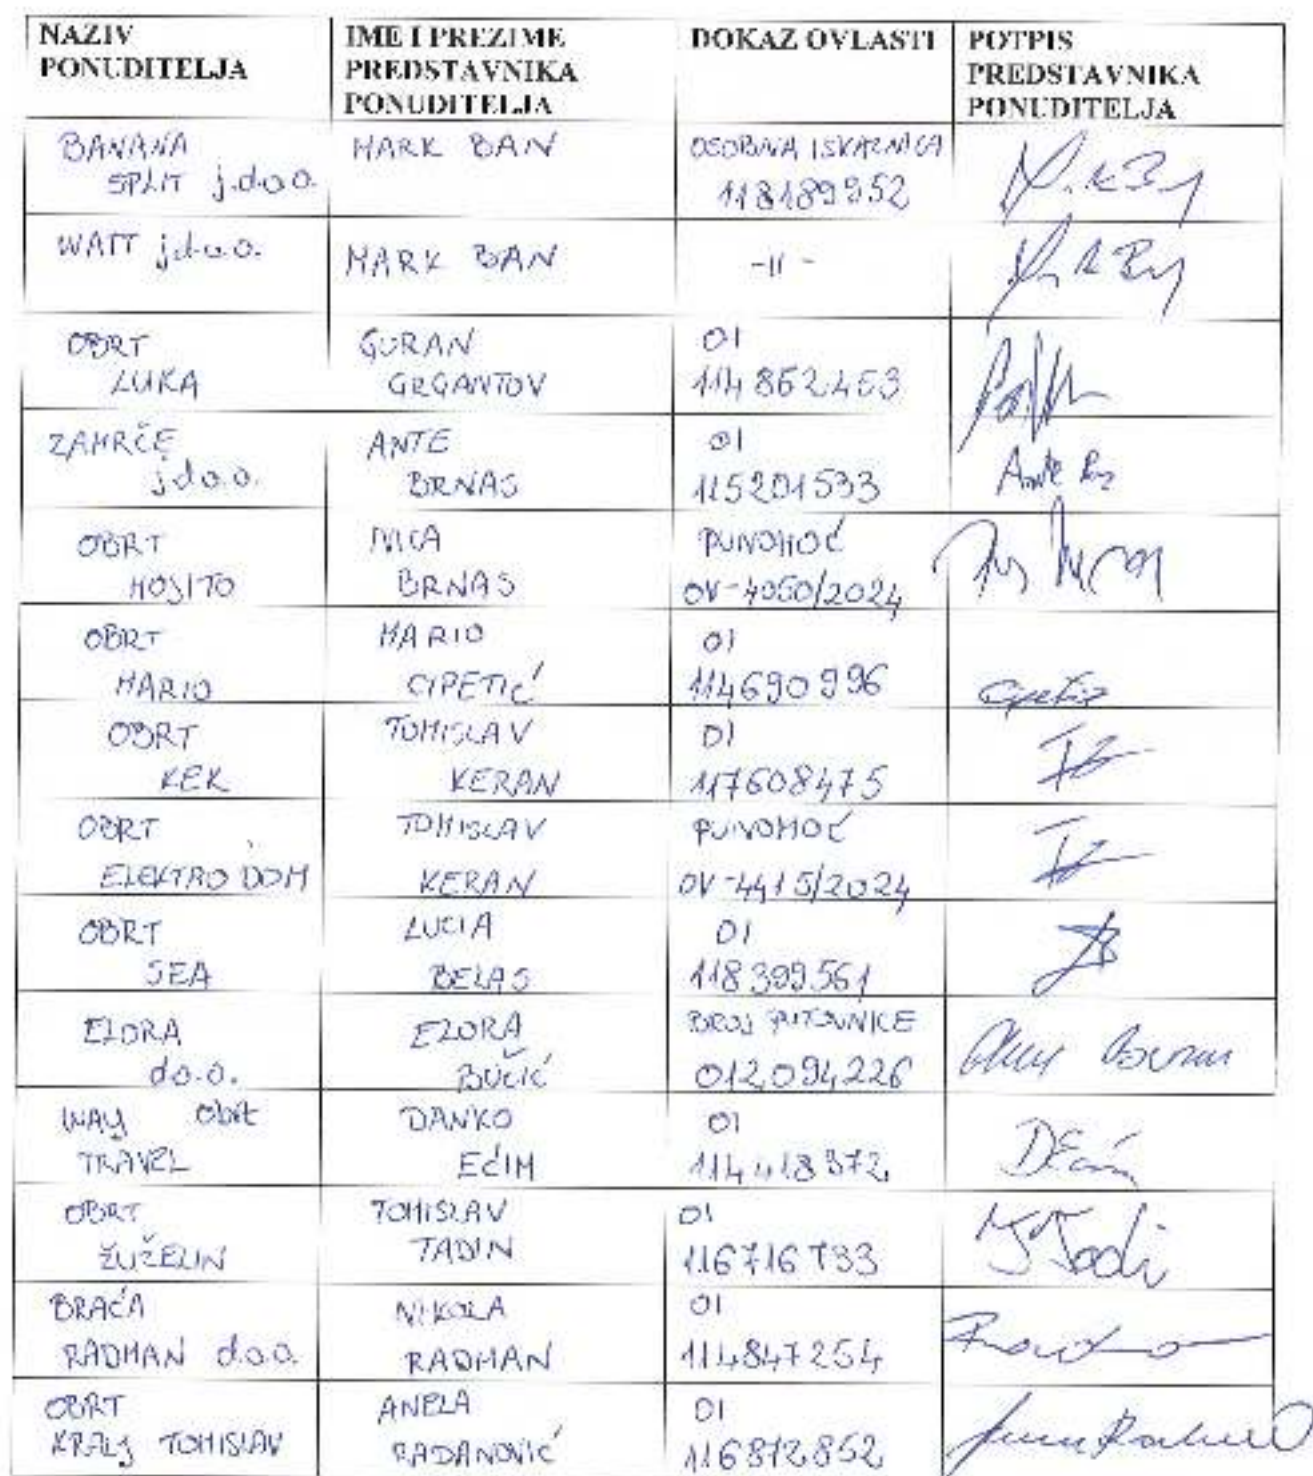 NAZIV
PONUDITELJA
IME I PREZIME
PREDSTAVNIKA
PONUDITELJA
DOKAZ OVLASTI
POTPIS
PREDSTAVNIKA
PONUDITELJA
BANANA
SPLIT j.d.o.o.
MARK BAN
OSOBNA ISKAZNICA
118189952
WATT j.d.o.o.
MARK BAN
-11-
OBRT
LUKA
GORAN
GRGANTOV
OI
114862453
ZAMRČE
j.d.o.o.
ANTE
BRNAS
OI
115201533
Ante
OBRT
MOJITO
IVICA
BRNAS
PUNOMOĆ
OV-4050/2024
OBRT
MARIO
MARIO
CIPETIĆ
OI
114690996
OBRT
KEK
TOMISLAV
KERAN
OI
117608475
OBRT
ELEKTRO DOM
TOMISLAV
KERAN
PUNOMOĆ
OV-4415/2024
OBRT
SEA
LUCIA
BELAS
OI
118399561
ELORA
d.o.o.
ELORA
BUČIĆ
BROJ PUTOVNICE
012094226
WAY Obrt
TRAVEL
DANKO
EĆIM
OI
114418372
OBRT
ŽUŽELIN
TOMISLAV
TADIN
OI
116716733
BRAĆA
RADMAN d.o.o.
NIKOLA
RADMAN
OI
114847254
OBRT
KRALJ TOMISLAV
ANELA
RADANOVIĆ
OI
116812852